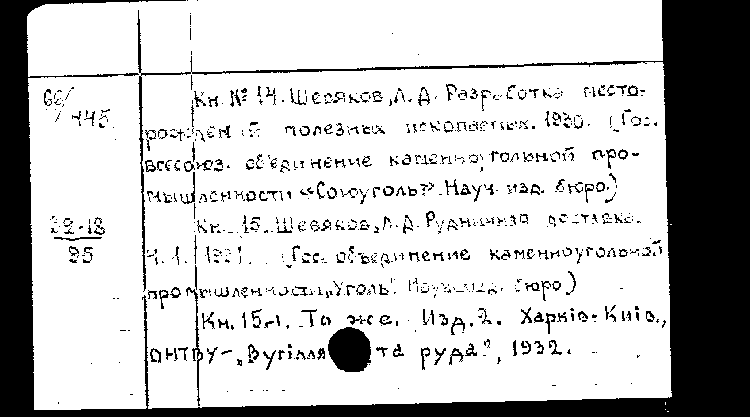 66/445
Кн. № 14. Шевяков, Л. Д. Разработка место-
рождений полезных ископаемых. 1930. (Гос.
всесоюз. объединение каменноугольной про-
мышленности «Союзуголь». Науч. изд. бюро.)
32-18
95
Кн. 15. Шевяков, Л. Д. Рудничная доставка.
Ч. 1. 1931. (Гос. объединение каменноугольной
промышленности „Уголь". Науч. изд. бюро)
Кн. 15-1. То же. Изд. 2. Харків-Київ.,
ОНТВУ-„Вугілля та руда", 1932.